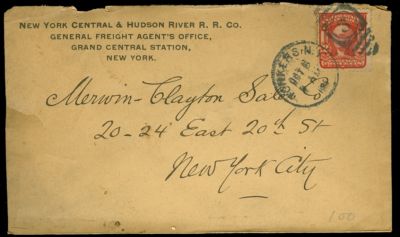 NEW YORK CENTRAL & HUDSON RIVER R. R. CO.
GENERAL FREIGHT AGENT'S OFFICE,
GRAND CENTRAL STATION,
NEW YORK.
YONKERS, N.Y.
Merwin-Clayton Sales Co
20-24 East 20th St
New York City
1.00